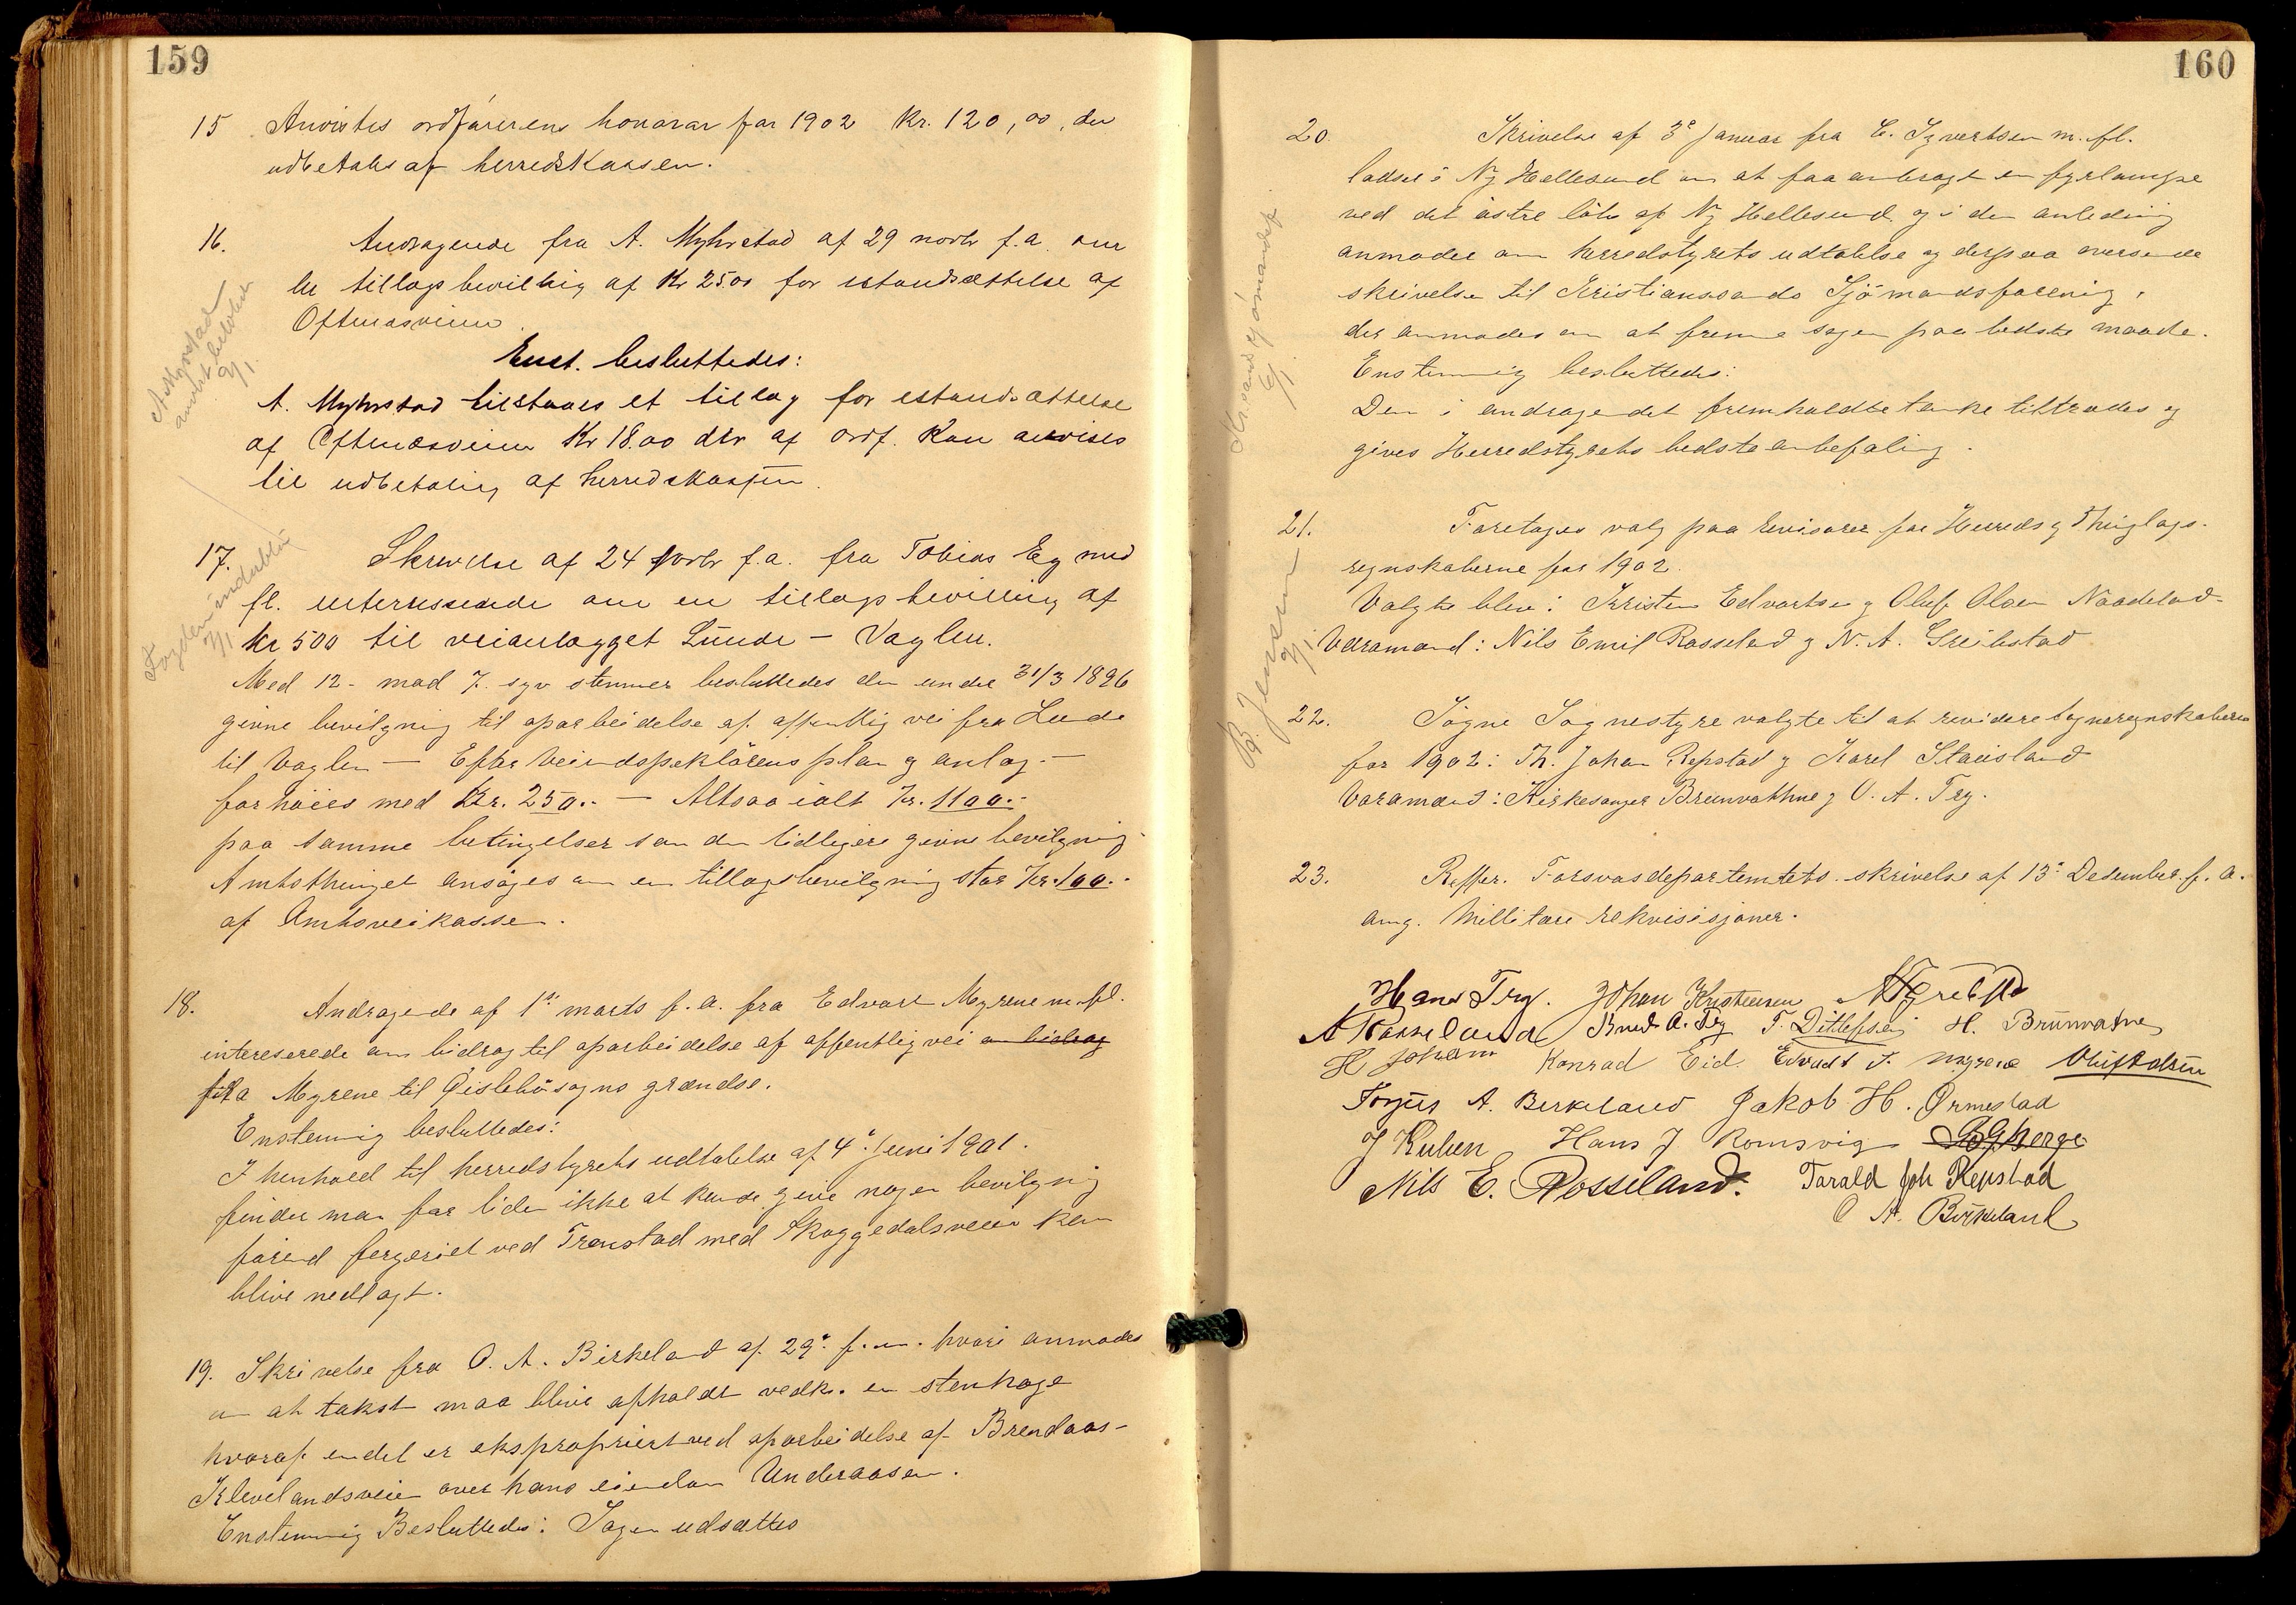 159
15 Anvistes ordførerens honorar for 1902 Kr. 120,00, der
udbetales af herredskassen.
16. Andragende fra A. Myhrstad af 29 novbr f.a. om
en tillægsbevilling af Kr 25.00 for istandsættelse af
Oftenæsveien.
Enst. besluttedes:
A. Myhrstad tilstaaes et tillæg for istandsættelse
af Oftenæsveien Kr 18.00 der af ordf. kan anvises
til udbetaling af herredskassen.
A Myhrstad
andt beløbet
9/1.
17. Skrivelse af 24 novbr f.a. fra Tobias Eg med
fl. interesserede om en tillægsbevilling af
Kr 500 til veianlægget Lunde – Vaglen.
Med 12 – mod 7. syv stemmer besluttedes den under 31/3 1896
givne bevilgning til oparbeidelse af offentlig vei fra Lunde
til Vaglen – Efter Veiindspektörens plan og anlæg. –
forhöies med Kr. 250.. – Altsaa ialt Kr. 1100.-
paa samme betingelser som den tidligere givne bevilgning.
Amtsthinget ansöges om en tillægsbevilgning stor Kr. 100.-
af Amtsveikassen.
Fogden
9/1
18. Andragende af 1ste marts f.a. fra Edvart Myrene m.fl.
intereserede om bidrag til oparbeidelse af offentlig vei om bidrag
fra Myrene til Öislebö sogns grændse.
Enstemmig besluttedes:
I henhold til herredstyrets udtalelse af 4de Juni 1901.
finder man for tiden ikke at kunde give nogen bevilgning
förend fergeriet ved Tronstad med Skoggedalsveien kan
blive nedlagt.
19. Skrivelse fra O. A. Birkeland af 29de f.m. hvori anmodes
om at takst maa blive afholdt vedk. en stenhage
hvoraf endel er eksproprieret ved oparbeidelse af Brendaas–
Klevelandsveien over hans eiendom Underaasen.
Enstemmig Besluttedes: Sagen udsættes
160
20. Skrivelse af 3de Januar fra E. Syvertsen m.fl.
lodser i Ny Hellesund om at faa anbragt en fyrlampe
ved det östre löb af Ny Hellesund og i den anledning
anmodes om herredstyrets udtalelse og derpaa oversende
skrivelsen til Kristianssands Sjömandsforening,
der anmodes om at fremme sagen paa bedste maade.
Enstemmig besluttedes:
Den i andragendet fremholdte tanke tiltrædes og
gives Herredstyrets bedste anbefaling.
Kr.sands sjómandsf
6/1
21. Foretages valg paa revisorer for Herreds og Thinglags-
regnskaberne for 1902.
Valgte blev: Kristen Edvartsen og Oluf Olsen Naadeland.
Varamænd: Nils Emil Rosseland og N. A. Greibstad
B. Jensen
9/1
22. Sögne Sognestyre valgte til at revidere sogneregnskaberne
for 1902: Th. Johan Repstad og Karel Stausland
Varamænd: Kirkesanger Brunvathne og O. A. Try.
23. Reffer. Forsvarsdepartemtets skrivelse af 13de Desember f.a.
ang. Millitære rekvisisjoner.
Hans Try. Johan Kristensen N A Greibstad
A Rosseland Knud O. Try T. Ditlefsen H. Brunvatne
H Johann Konrad Eid. Edvardt T. Myrene Oluf Olsen
Torjus A. Birkeland Jakob H. Ormestad
J Kuhen Hans J Romsvig
Nils E. Rosseland. Tarald Joh Repstad
O A. Birkeland